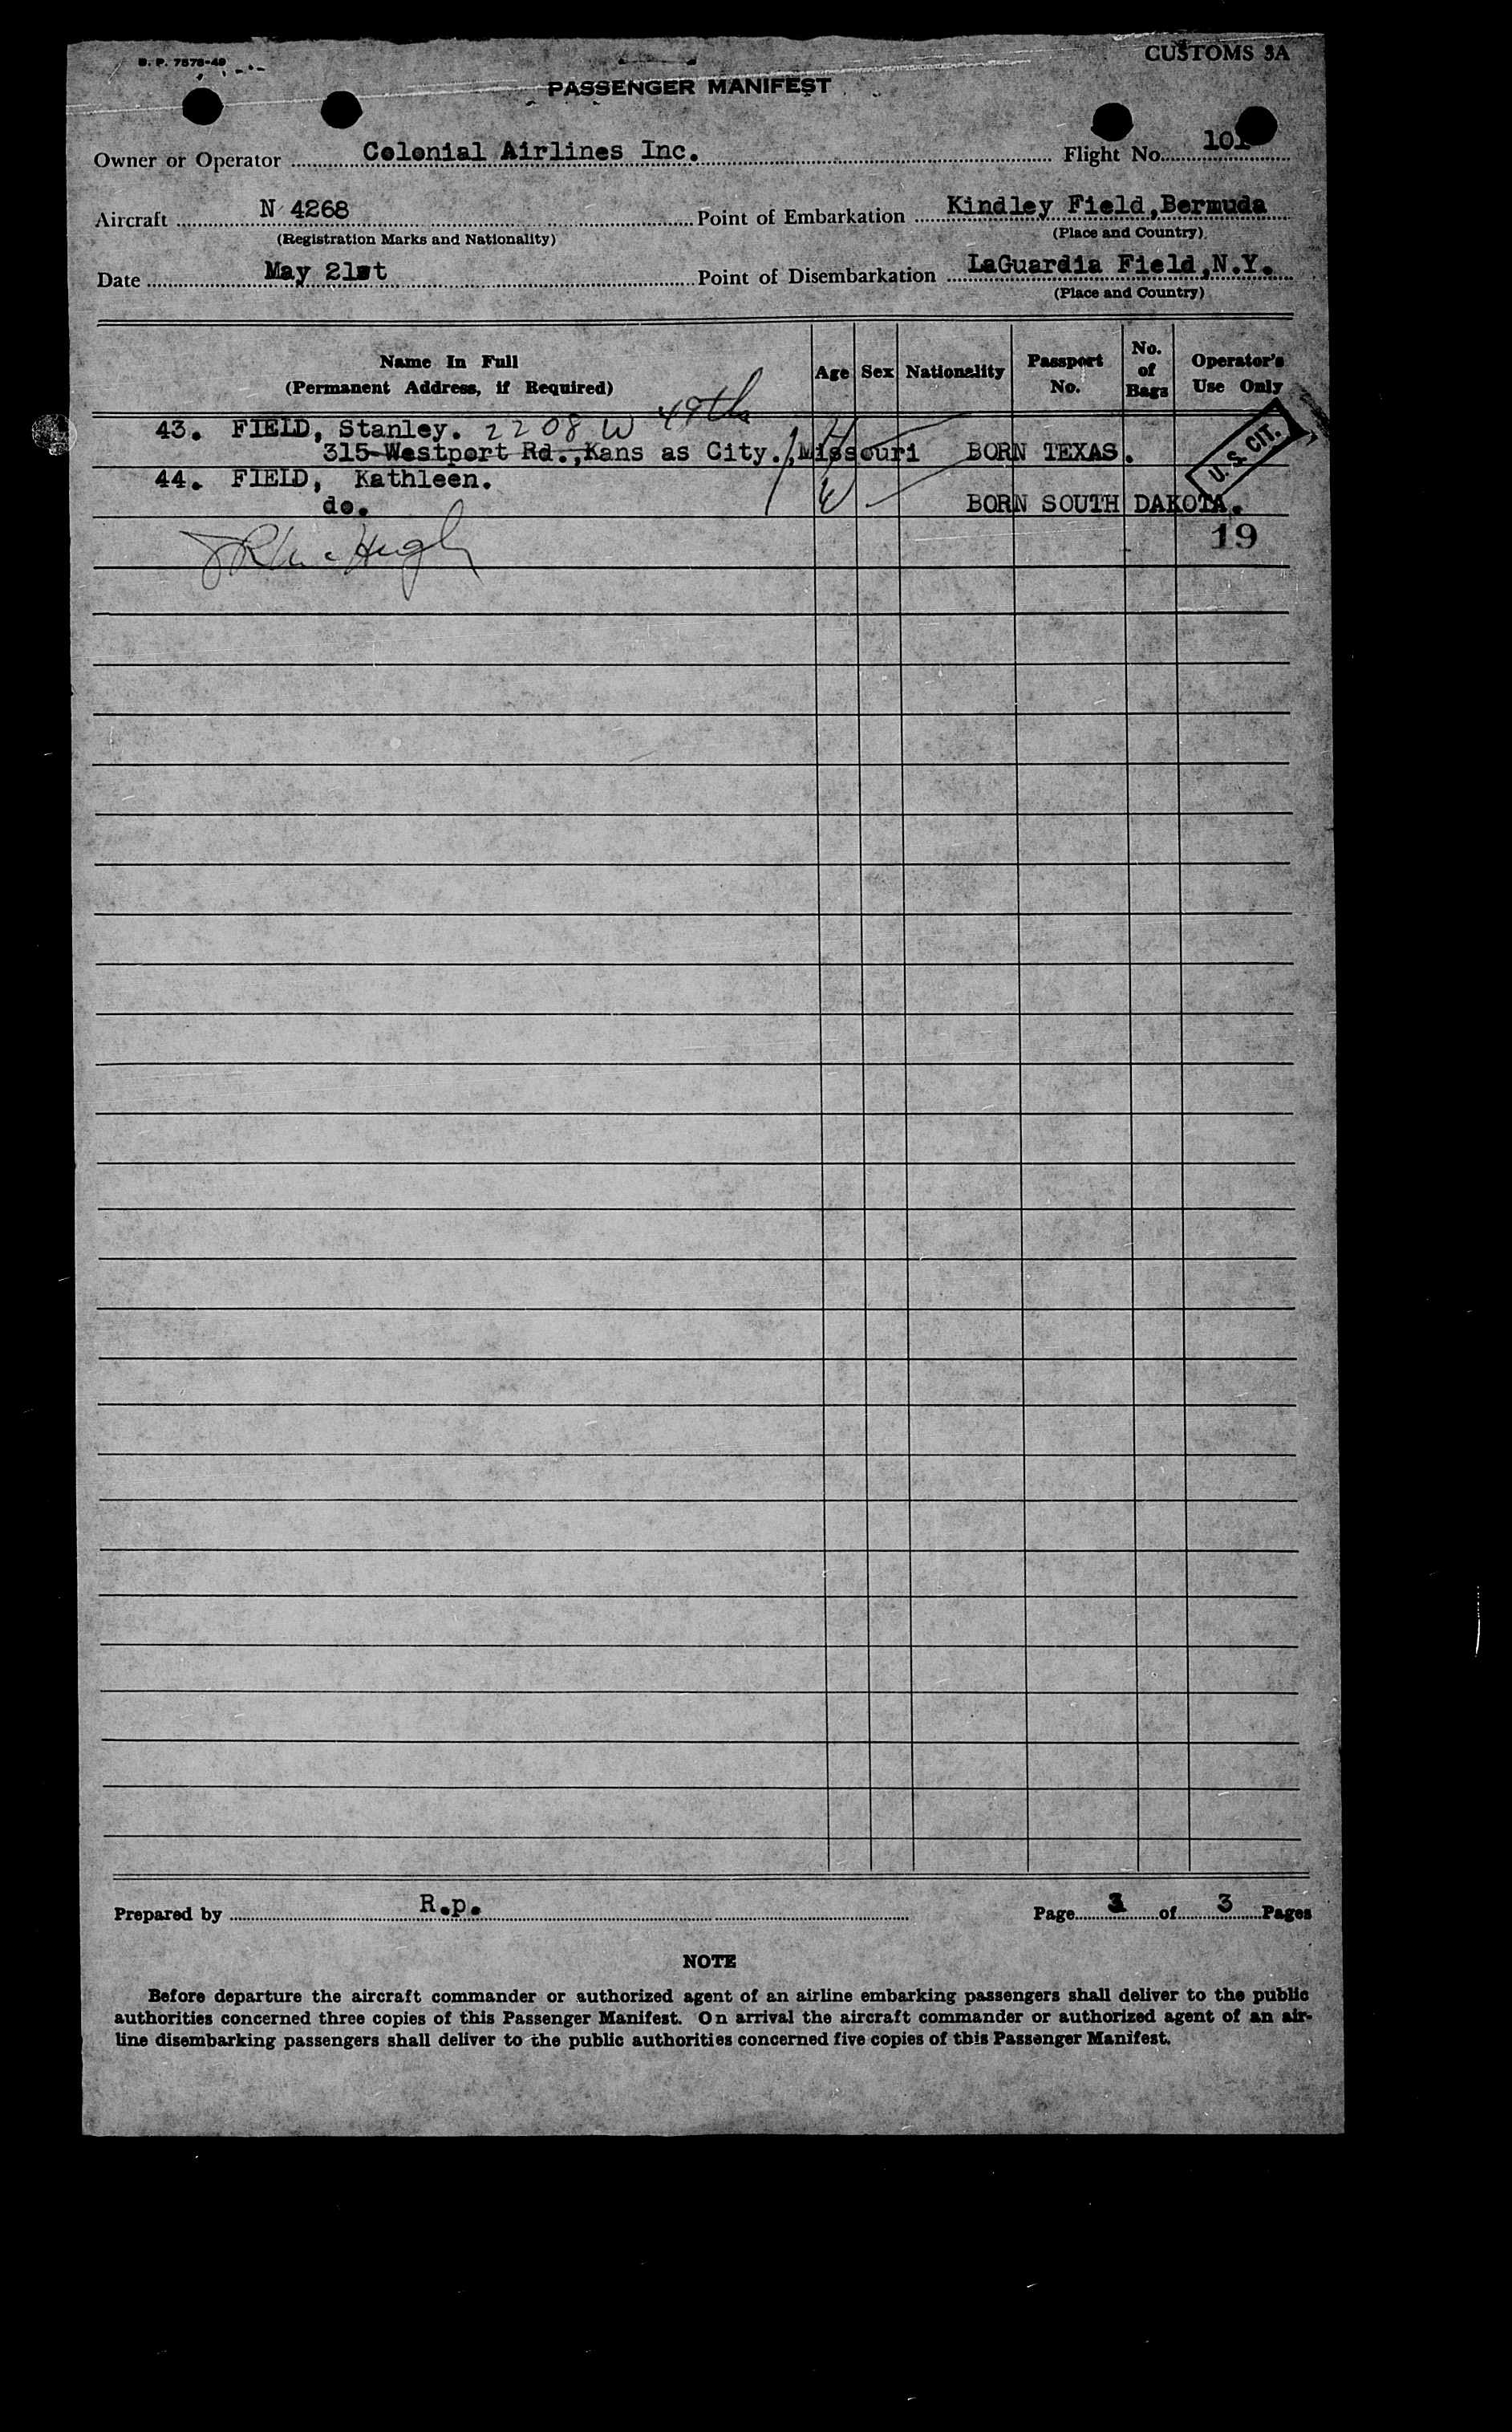 B. P. 7578-49
CUSTOMS 3A
PASSENGER MANIFEST
Owner or Operator Colonial Airlines Inc. Flight No. 101
Aircraft N 4268 Point of Embarkation Kindley Field,Bermuda
(Registration Marks and Nationality) (Place and Country)
Date May 21st Point of Disembarkation LaGuardia Field,N.Y.
(Place and Country)
Name In Full (Permanent Address, if Required) Age Sex Nationality Passport No. No. of Bags Operator's Use Only
43. FIELD, Stanley. 2208 W 49th
315 Westport Rd.,Kans as City.,Missouri BORN TEXAS. U. S. CIT.
44. FIELD, Kathleen.
do. BORN SOUTH DAKOTA.
19
Prepared by R.p. Page 3 of 3 Pages
NOTE
Before departure the aircraft commander or authorized agent of an airline embarking passengers shall deliver to the public
authorities concerned three copies of this Passenger Manifest. On arrival the aircraft commander or authorized agent of an air-
line disembarking passengers shall deliver to the public authorities concerned five copies of this Passenger Manifest.